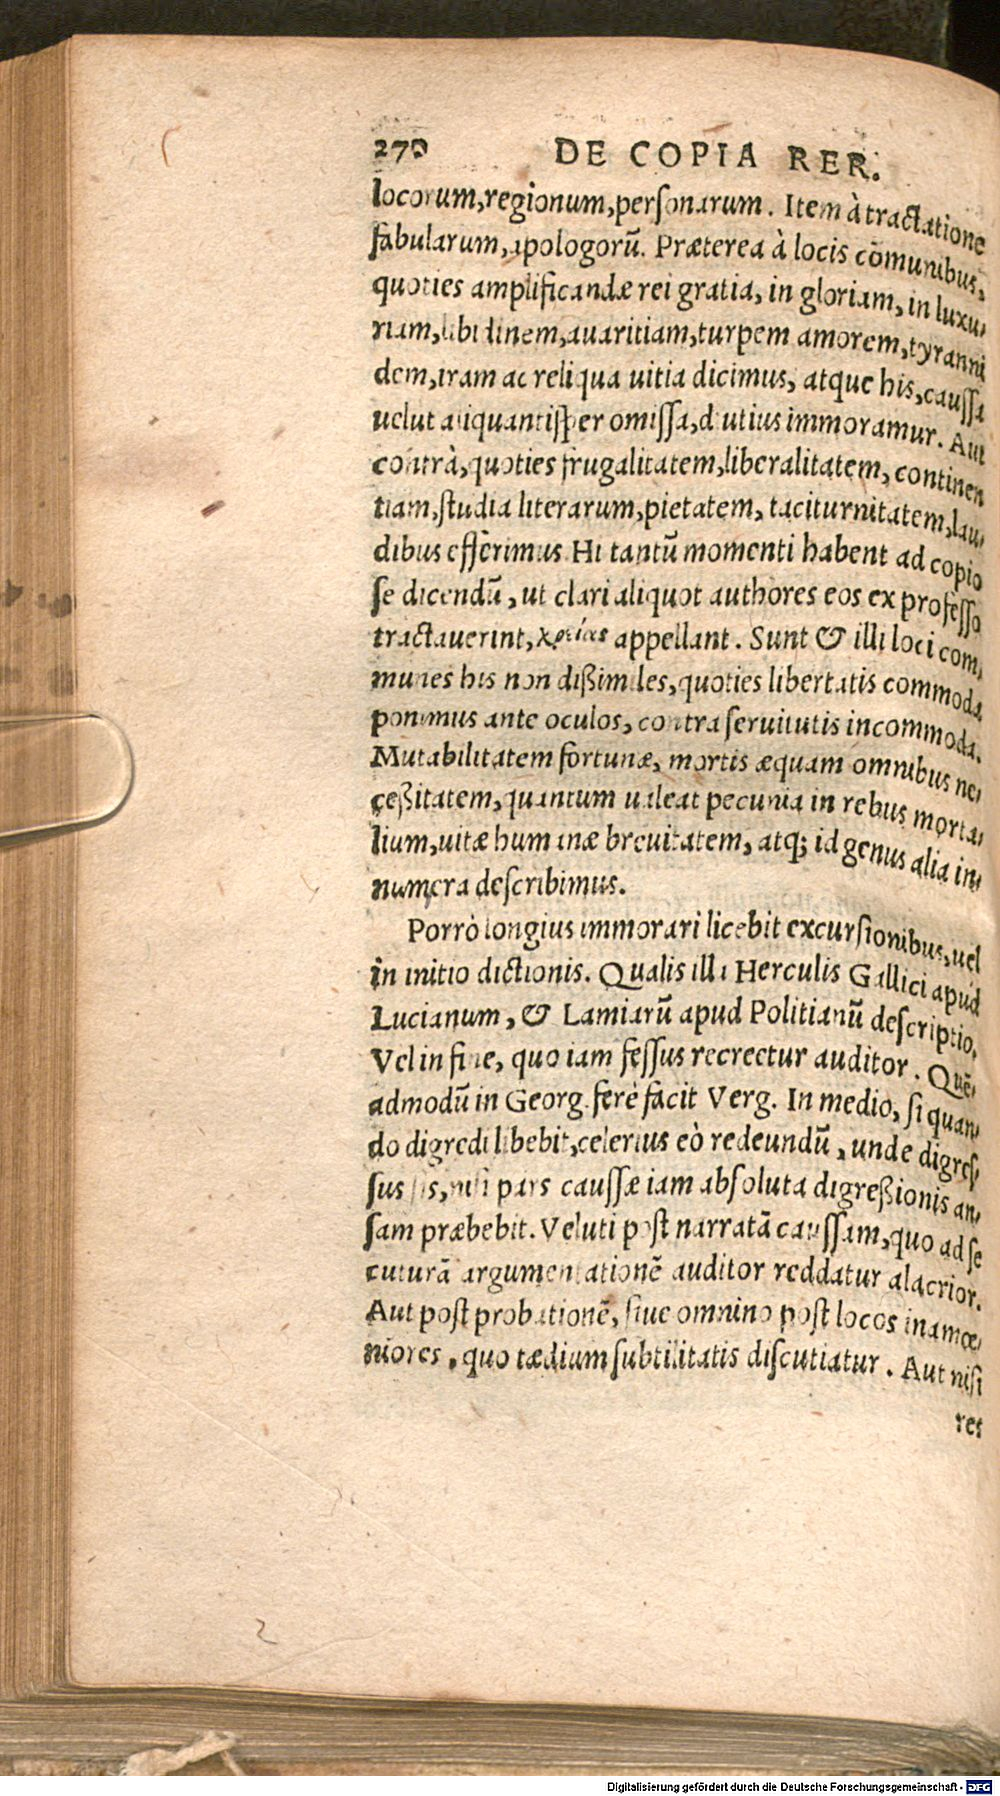 270 DE COPIA RER.
locorum,regionum,perſonarum. Item à tractatione
fabularum,apologorũ. Præterea à locis cõmunibus,
quoties amplificandæ rei gratia, in gloriam, in luxu-
riam,libidinem,auaritiam,turpem amorem,tyranni
dem,iram ac reliqua uitia dicimus, atque his,cauſſa
uelut aliquantiſper omiſſa,diutius immoramur. Aut
contrà,quoties frugalitatem,liberalitatem, continen
tiam,ſtudia literarum,pietatem, taciturnitatem,lau-
dibus efferimus Hi tantũ momenti habent ad copio
ſe dicendũ, ut clari aliquot authores eos ex profeſſo
tractauerint, appellant. Sunt & illi loci com-
munes his non dißimiles,quoties libertatis commoda
ponimus ante oculos, contra ſeruitutis incommoda.
Mutabilitatem fortunæ, mortis æquam omnibus ne-
ceßitatem,quantum ualeat pecunia in rebus morta-
lium,uitæ humanæ breuitatem, atq; id genus alia in-
numera deſcribimus.
Porrò longius immorari licebit excurſionibus,uel
in initio dictionis. Qualis illi Herculis Gallici apud
Lucianum, & Lamiarũ apud Politianũ deſcriptio,
Vel in fine, quo iam feſſus recreetur auditor. Quẽ-
admodũ in Georg. ferè facit Verg. In medio, ſi quan-
do digredi libebit,celerius eò redeundũ, unde digreſ
ſus ſis,niſi pars cauſſæ iam abſoluta digreßionis an-
ſam præbebit. Veluti poſt narratã cauſſam,quo ad ſe
cuturã argumentationẽ auditor reddatur alacrior.
Aut poſt probationẽ, ſiue omnino poſt locos inamœ-
niores, quo tædium ſubtilitatis diſcutiatur. Aut niſi
res
Digitalisierung gefördert durch die Deutsche Forschungsgemeinschaft - DFG